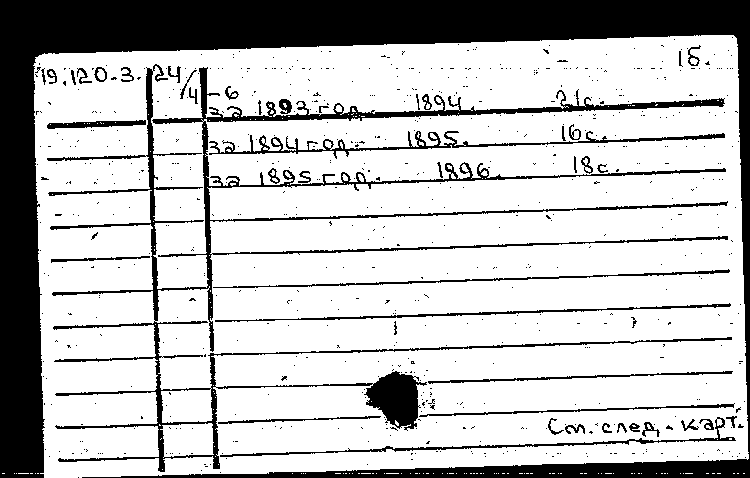 1б.
19.120.3. 24/4-6
за 1893 год. 1894. 21с.
за 1894 год. 1895. 16с.
за 1895 год. 1896. 18с.
См. след. карт.